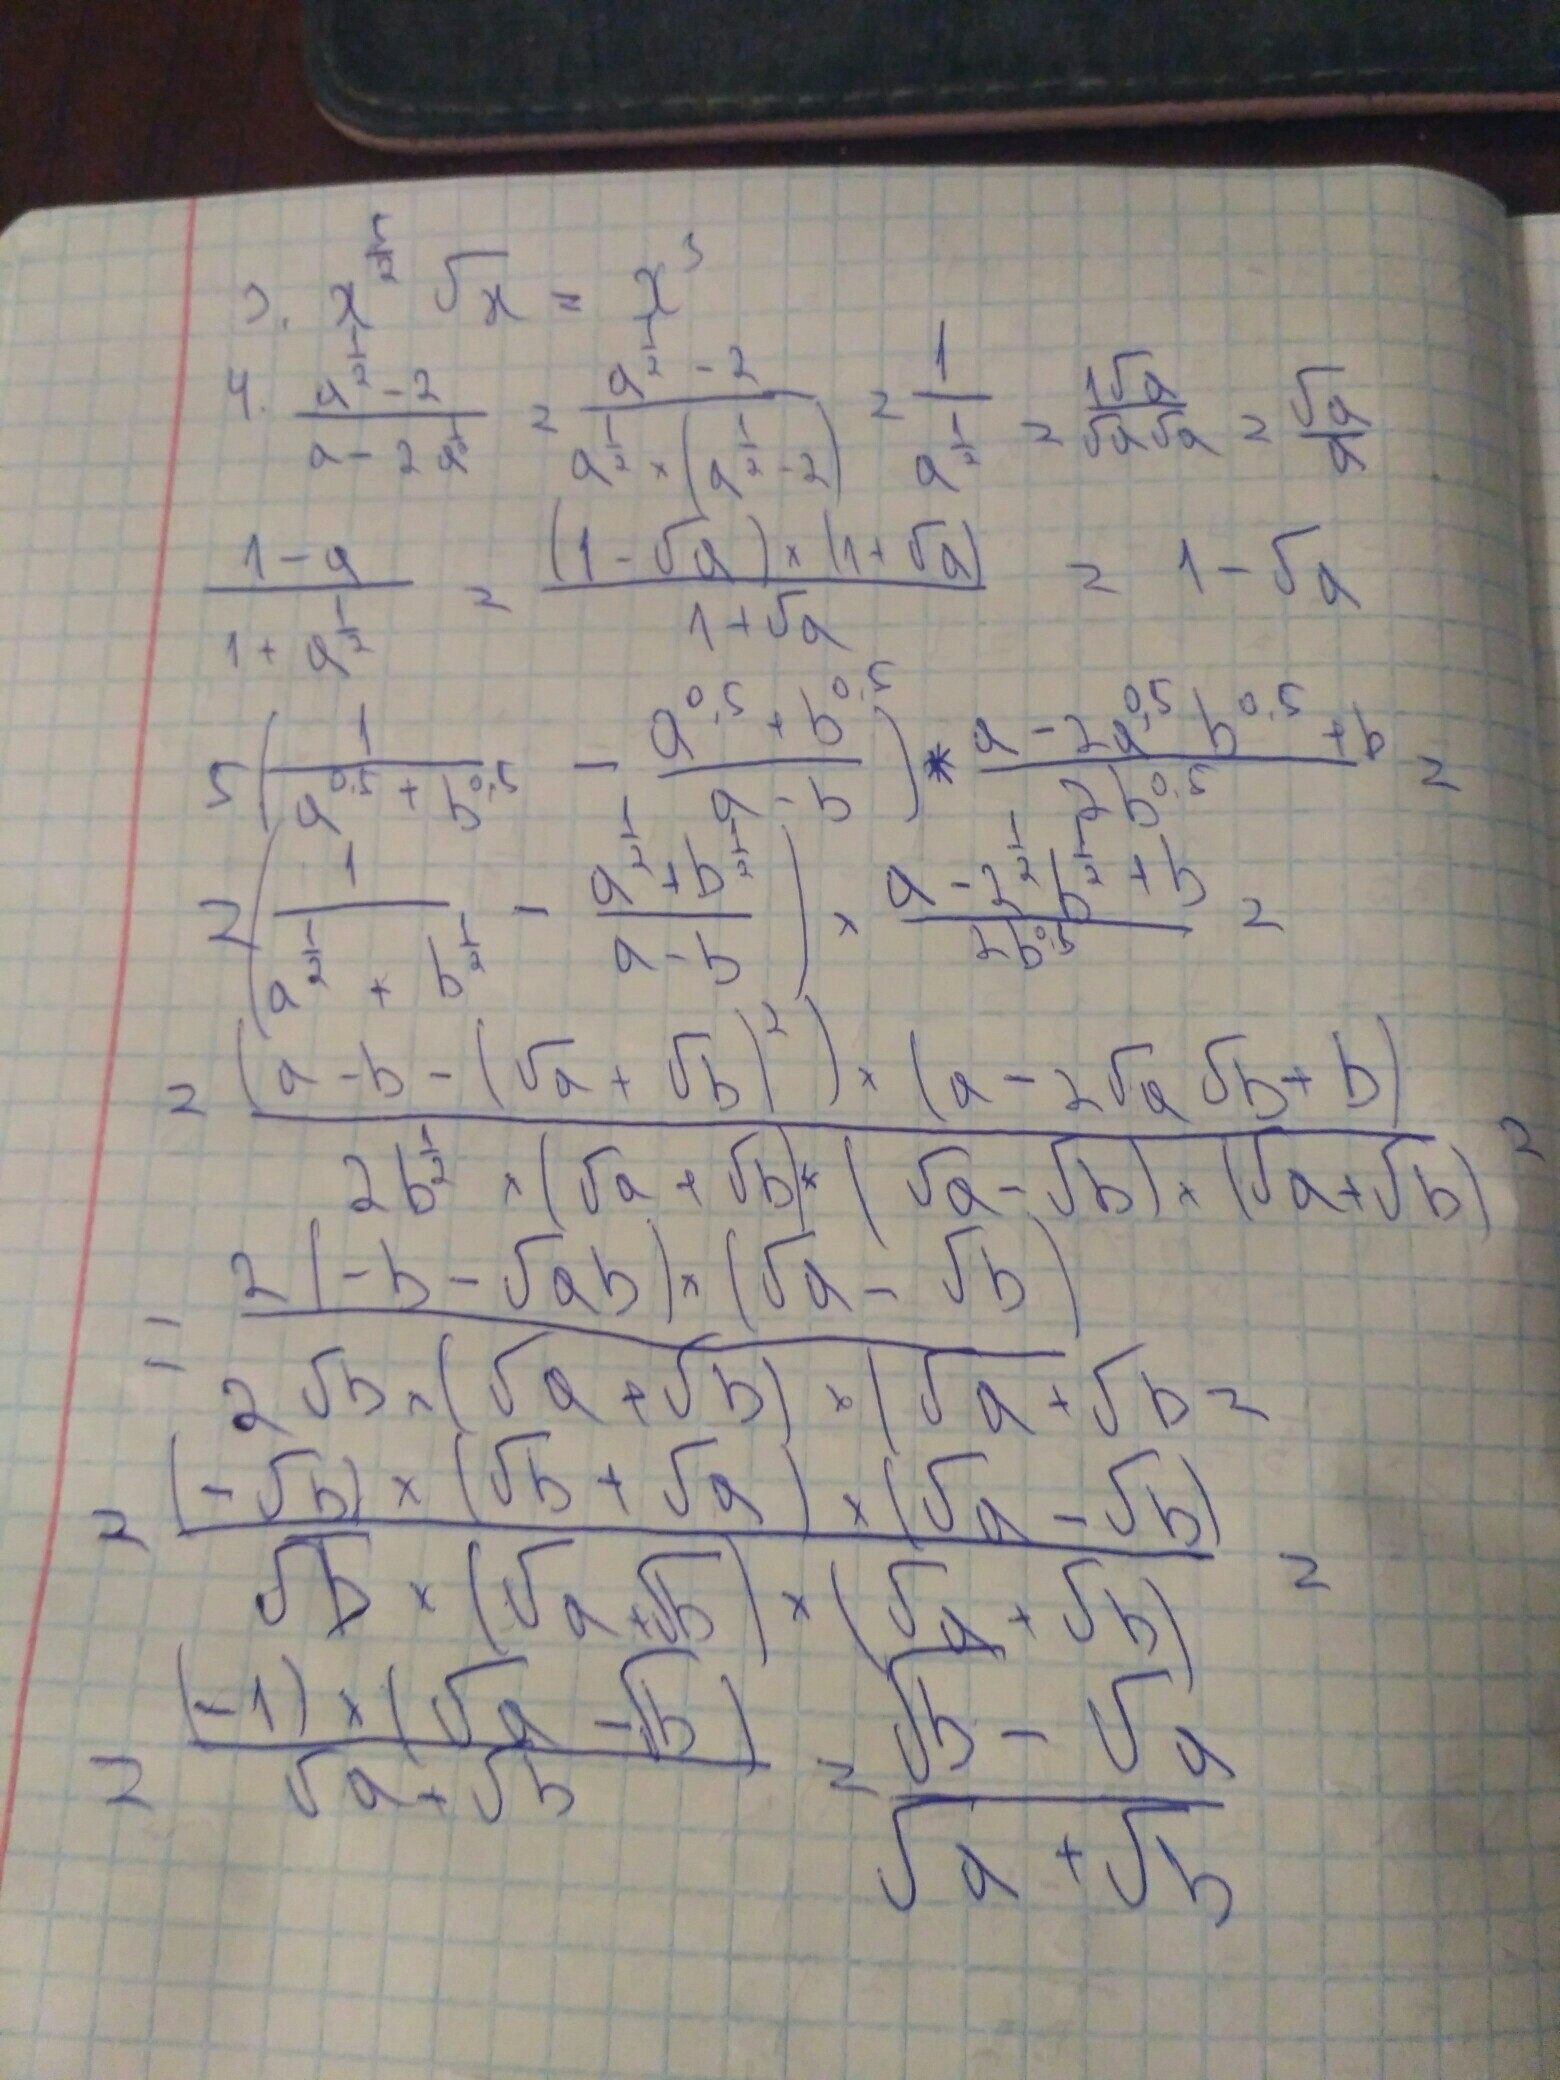 3. x^{5/2} √x = x^3
4. (a^{1/2} - 2)/(a - 2a^{1/2}) = (a^{1/2} - 2)/(a^{1/2} × (a^{1/2} - 2)) = 1/a^{1/2} = 1√a/(√a √a) = √a/a
(1 - a)/(1 + a^{1/2}) = ((1 - √a) × (1 + √a))/(1 + √a) = 1 - √a
5 (1/(a^{0,5} + b^{0,5}) - (a^{0,5} + b^{0,5})/(a - b)) * (a - 2a^{0,5} b^{0,5} + b)/(2b^{0,5}) =
= (1/(a^{1/2} + b^{1/2}) - (a^{1/2} + b^{1/2})/(a - b)) × (a - 2^{1/2} b^{1/2} + b)/(2b^{0,5}) =
= ((a - b - (√a + √b)^2) × (a - 2√a √b + b))/(2b^{1/2} × (√a + √b) * (√a - √b) × (√a + √b)) =
= (2(-b - √ab) × (√a - √b))/(2√b × (√a + √b) × (√a + √b =
= ((-√b) × (√b + √a) × (√a - √b))/(√b × (√a + √b) × (√a + √b)) =
= ((-1) × (√a - √b))/(√a + √b) = (√b - √a)/(√a + √b)